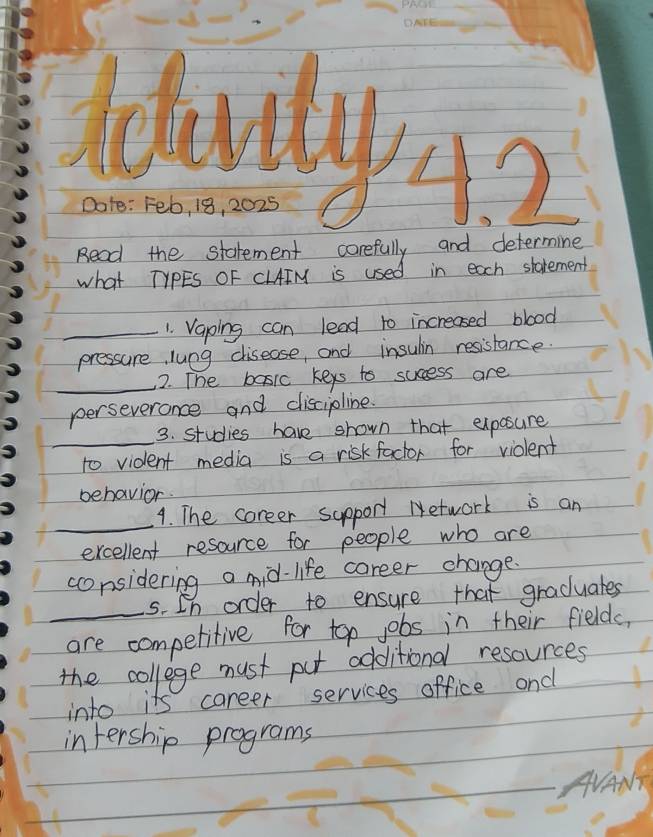 PAGE
DATE
Activity 4.2
Date: Feb, 18, 2025
Read the statement carefully and determine
what TYPES OF CLAIM is used in each statement
________1. Vaping can lead to increased blood
pressure, lung disease, and insulin resistance.
________2. The basic keys to success are
perseverance and discipline.
________3. Studies have shown that exposure
to violent media is a risk factor for violent
behavior.
________4. The career support Network is an
excellent resource for people who are
considering a mid-life career change.
________5. In order to ensure that graduates
are competitive for top jobs in their fields,
the college must put additional resources
into its career services office and
intership programs
AVANT